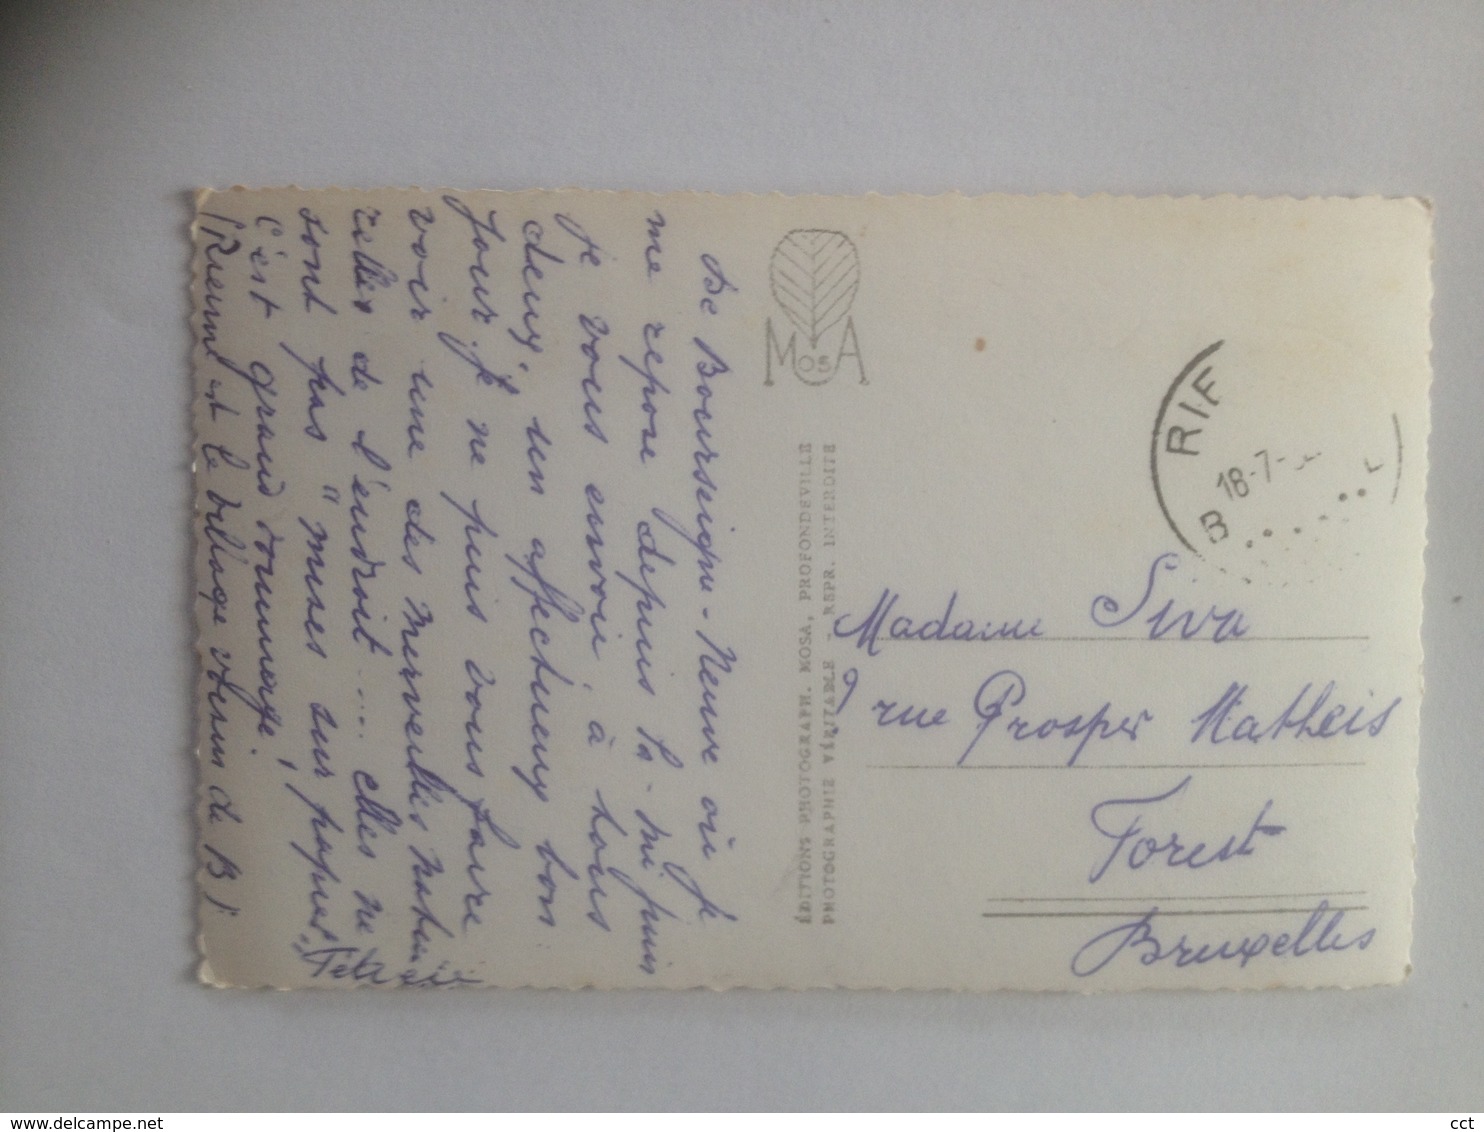 De Bourseigne-Neuve où je
me repose depuis la-mi juin
je vous envoie, à tous
deux, un affectueux bon
jour. Je ne puis vous faire
voir une des merveilles natu
relles de l'endroit .... elles ne
sont pas "mises sur papier"
c'est grand dommage!
(Rienne est le village voisin de B)
MOSA
ÉDITIONS PHOTOGRAPH. MOSA, PROFONDEVILLE
PHOTOGRAPHIE VÉRITABLE - REPR. INTERDITE
RIE
18-7-
B
Madame Siva
9 rue Prosper Matheis
Forest
Bruxelles
www.delcampe.net
cct